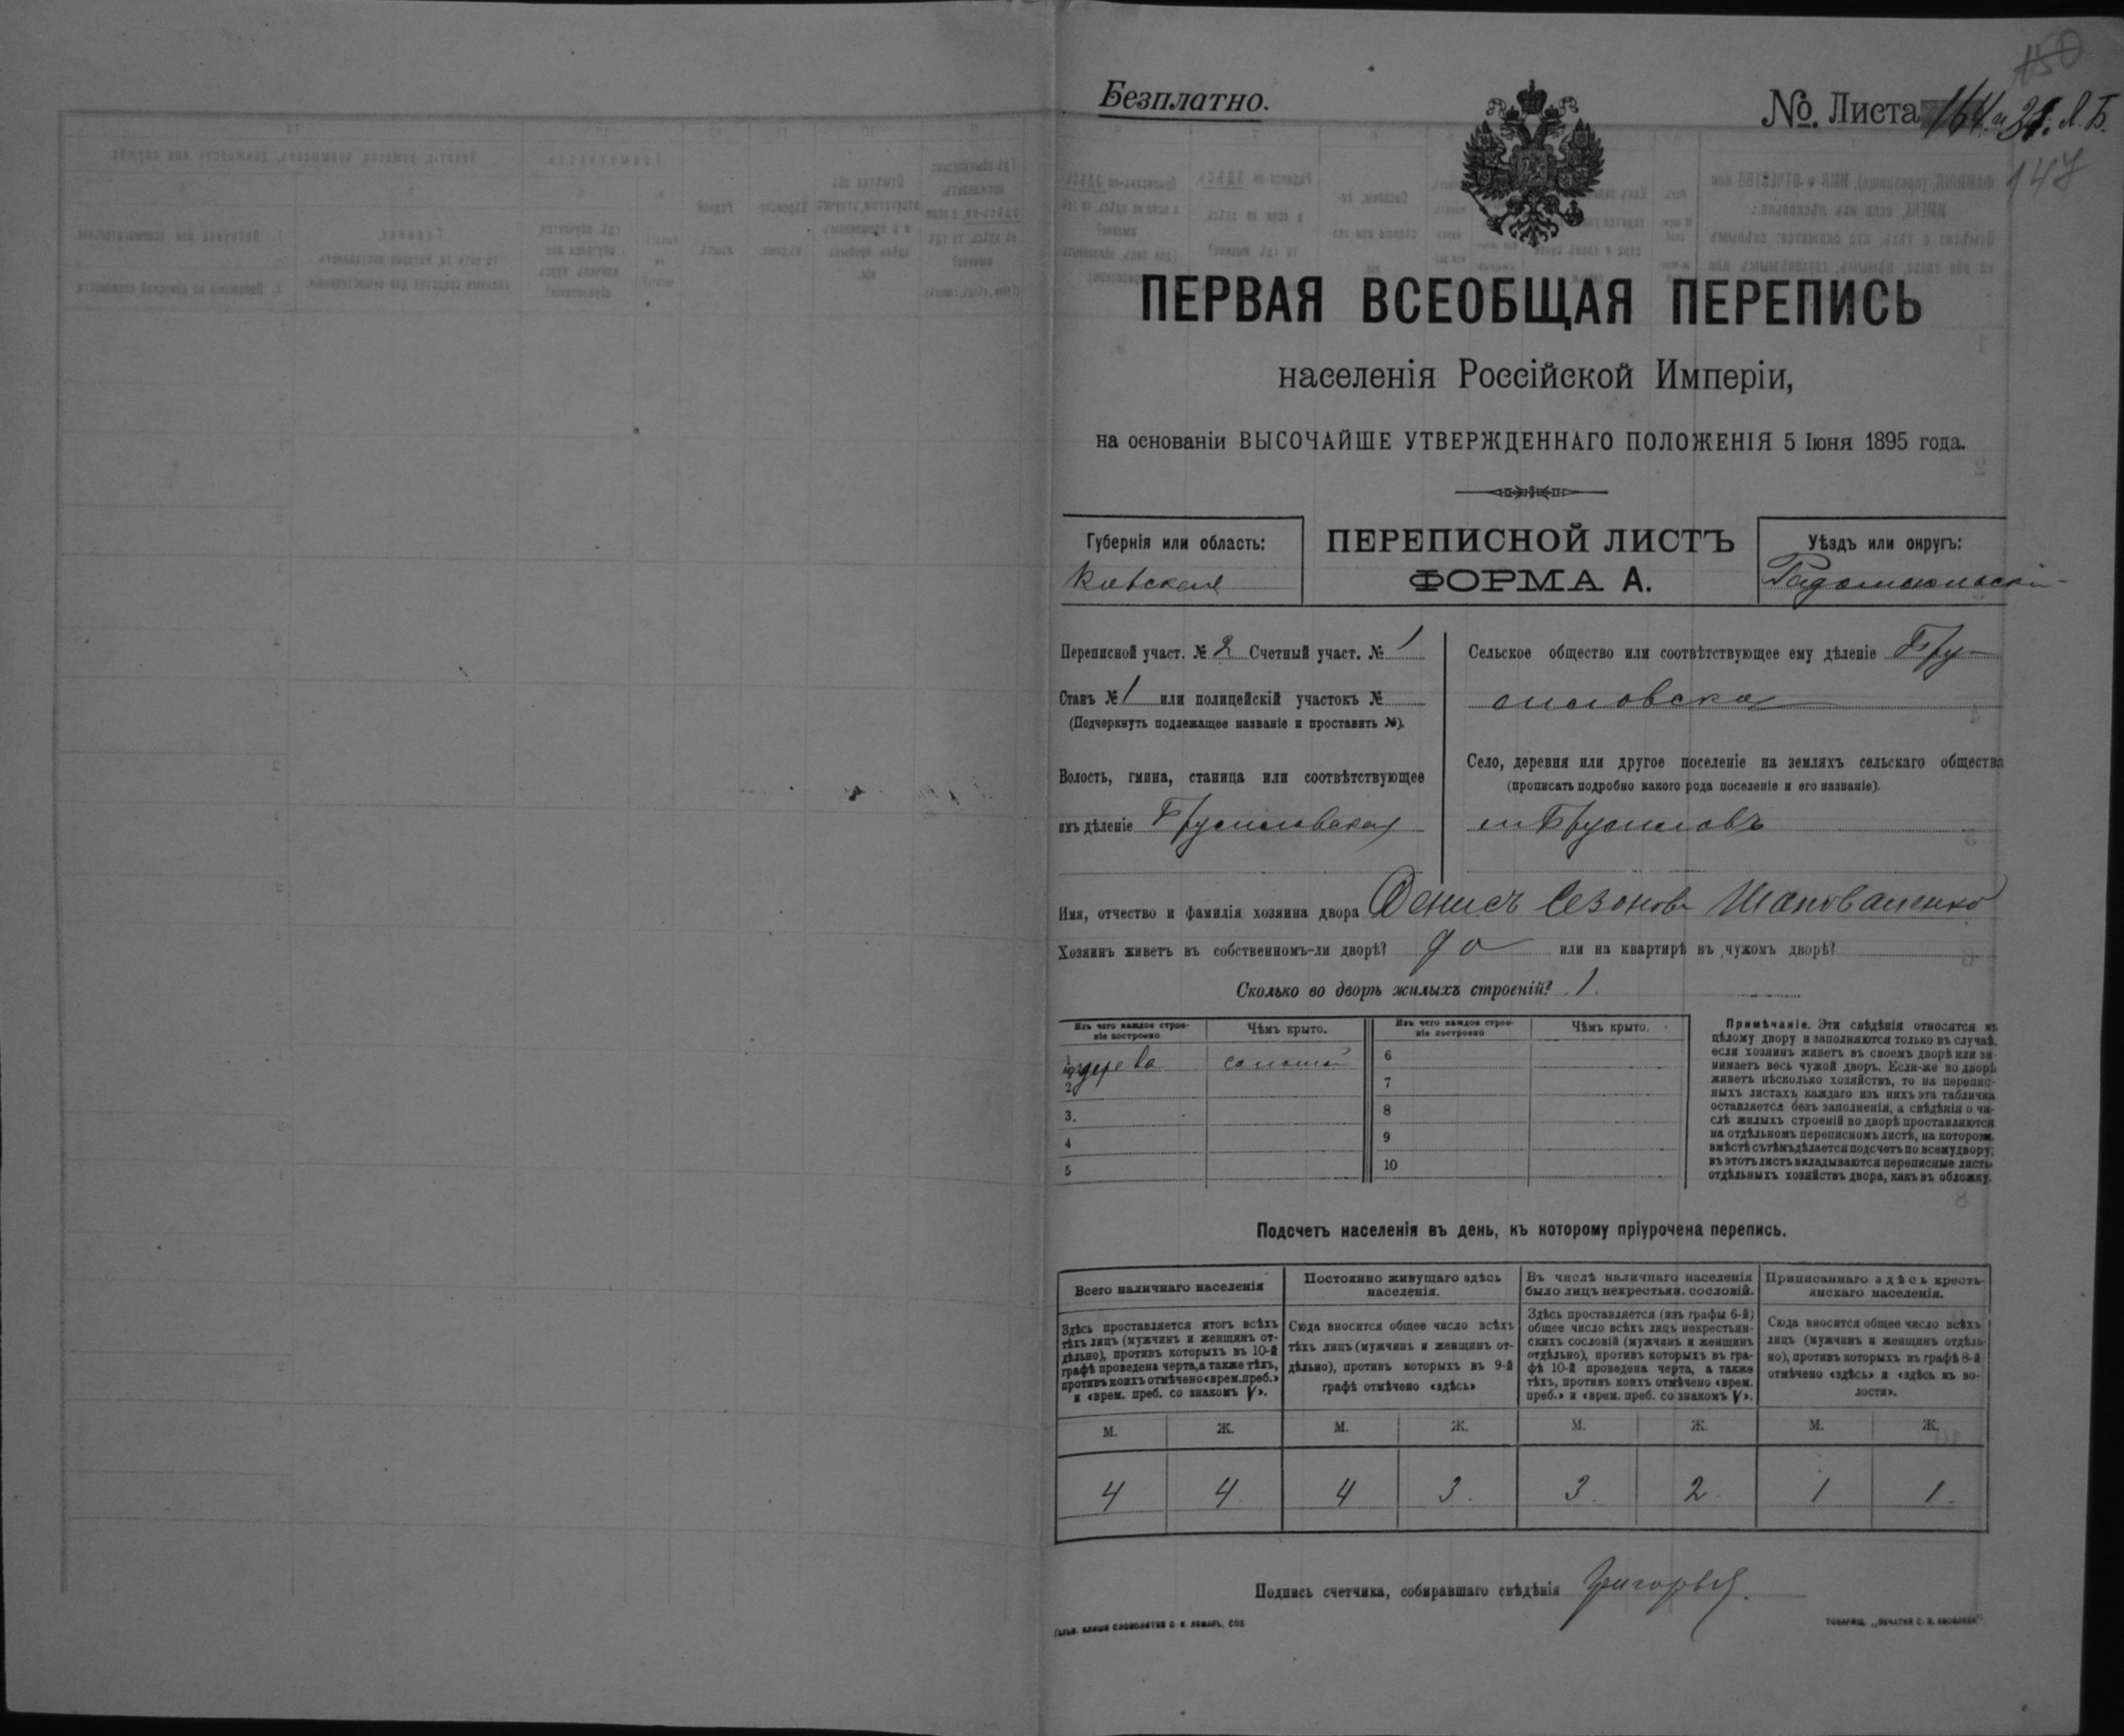 150
Безплатно.
№. Листа 164. и 31. Л. Б.
147
ПЕРВАЯ ВСЕОБЩАЯ ПЕРЕПИСЬ
населенія Россійской Имперіи,
на основаніи ВЫСОЧАЙШЕ УТВЕРЖДЕННАГО ПОЛОЖЕНІЯ 5 Іюня 1895 года.
Губернія или область:
Кіевская
ПЕРЕПИСНОЙ ЛИСТЪ
ФОРМА А.
Уѣздъ или округъ:
Радомысльскій
Переписной участ. № 2 Счетный участ. № 1
Станъ № 1 или полицейскій участокъ №
(Подчеркнуть подлежащее названіе и проставить №).
Волость, гмина, станица или соотвѣтствующее
имъ дѣленіе Брусиловская
Сельское общество или соотвѣтствующее ему дѣленіе Бру-
силовское
Село, деревня или другое поселеніе на земляхъ сельскаго общества
(прописать подробно какого рода поселеніе и его названіе).
м Брусиловъ
Имя, отчество и фамилія хозяина двора Денисъ Сезоновъ Шаповаленко
Хозяинъ живетъ въ собственномъ-ли дворѣ? да или на квартирѣ въ чужомъ дворѣ?
Сколько во дворѣ жилыхъ строеній? 1.
Изъ чего каждое строе-
ніе построено
Чѣмъ крыто.
Изъ чего каждое строе-
ніе построено
Чѣмъ крыто.
1 дерева соломой 6
2 7
3. 8
4 9
5 10
Примѣчаніе. Эти свѣдѣнія относятся къ
цѣлому двору и заполняются только въ случаѣ,
если хозяинъ живетъ въ своемъ дворѣ или за-
нимаетъ весь чужой дворъ. Если-же во дворѣ
живетъ нѣсколько хозяйствъ, то на перепис-
ныхъ листахъ каждаго изъ нихъ эта табличка
оставляется безъ заполненія, а свѣдѣнія о чи-
слѣ жилыхъ строеній во дворѣ проставляются
на отдѣльномъ переписномъ листѣ, на которомъ
вмѣстѣ съ тѣмъ дѣлается подсчетъ по всему двору;
въ этотъ листъ вкладываются переписные листы
отдѣльныхъ хозяйствъ двора, какъ въ обложку.
Подсчетъ населенія въ день, къ которому пріурочена перепись.
Всего наличнаго населенія
Здѣсь проставляется итогъ всѣхъ
тѣхъ лицъ (мужчинъ и женщинъ от-
дѣльно), противъ которыхъ въ 10-й
графѣ проведена черта, а также тѣхъ,
противъ коихъ отмѣчено «врем. преб.»
и «врем. преб. со знакомъ V».
Постоянно живущаго здѣсь
населенія.
Сюда вносится общее число всѣхъ
тѣхъ лицъ (мужчинъ и женщинъ от-
дѣльно), противъ которыхъ въ 9-й
графѣ отмѣчено «здѣсь»
Въ числѣ наличнаго населенія
было лицъ некрестьян. сословій.
Здѣсь проставляется (изъ графы 6-й)
общее число всѣхъ лицъ некрестьян-
скихъ сословій (мужчинъ и женщинъ
отдѣльно), противъ которыхъ въ гра-
фѣ 10-й проведена черта, а также
тѣхъ, противъ коихъ отмѣчено «врем.
преб.» и «врем. преб. со знакомъ V».
Приписаннаго здѣсь кресть-
янскаго населенія.
Сюда вносится общее число всѣхъ
лицъ (мужчинъ и женщинъ отдѣль-
но), противъ которыхъ въ графѣ 8-й
отмѣчено «здѣсь» и «здѣсь къ во-
лости».
М. Ж. М. Ж. М. Ж. М. Ж.
4 4. 4 3. 3. 2. 1 1.
Подпись счетчика, собиравшаго свѣдѣнія Григорьев.
ГАЛЬВ. КЛИШЕ СЛОВОЛИТНЯ О. И. ЛЕМАНЪ, СПБ
ТОВАРИЩ. „ПЕЧАТНЯ С. П. ЯКОВЛЕВА“